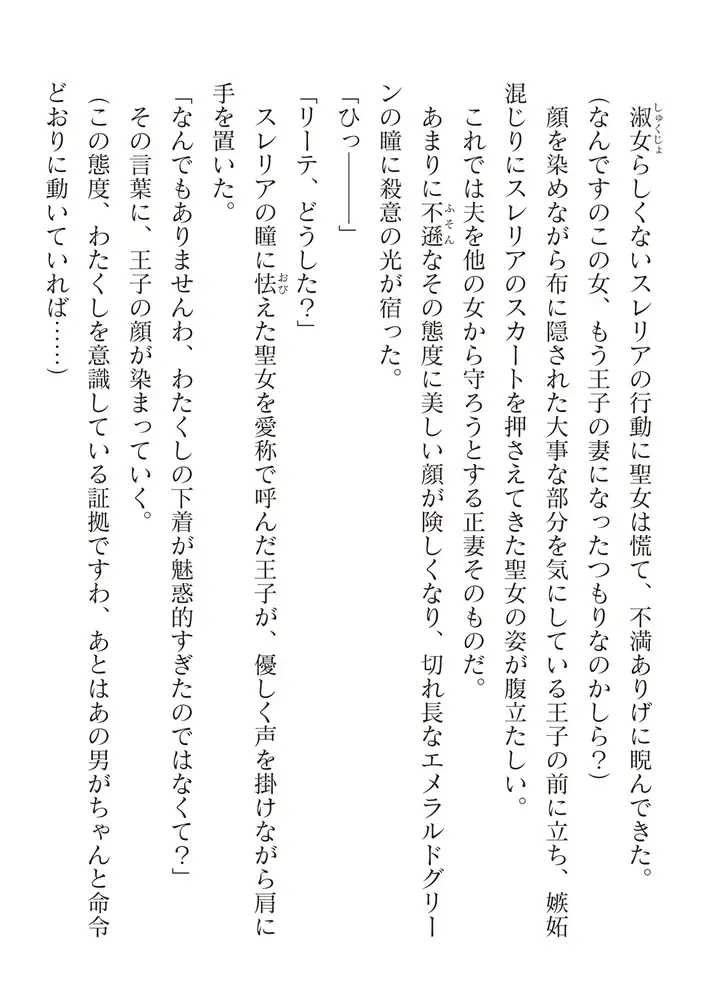 淑女らしくないスレリアの行動に聖女は慌て、不満ありげに睨んできた。
(なんですのこの女、もう王子の妻になったつもりなのかしら?)
顔を染めながら布に隠された大事な部分を気にしている王子の前に立ち、嫉妬
混じりにスレリアのスカートを押さえてきた聖女の姿が腹立たしい。
これでは夫を他の女から守ろうとする正妻そのものだ。
あまりに不遜なその態度に美しい顔が険しくなり、切れ長なエメラルドグリー
ンの瞳に殺意の光が宿った。
「ひっ――」
「リーテ、どうした?」
スレリアの瞳に怯えた聖女を愛称で呼んだ王子が、優しく声を掛けながら肩に
手を置いた。
「なんでもありませんわ、わたくしの下着が魅惑的すぎたのではなくて?」
その言葉に、王子の顔が染まっていく。
(この態度、わたくしを意識している証拠ですわ、あとはあの男がちゃんと命令
どおりに動いていれば……)
しゅくじょ
ふそん
おび